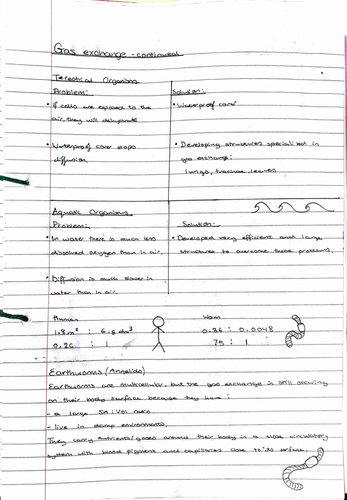 Gas exchange - continued
Terrestrial Organisms
Problem:
Solution:
• If cells are exposed to the
air, they will dehydrate
• Waterproof cover
• Waterproof cover stops
diffusion.
• Developing structures specialised in
gas exchange:
lungs, tracheae, leaves
Aquatic Organisms
Problem:
Solution:
• In water there is much less
dissolved oxygen than in air.
• Developed very efficient and large
structures to overcome these problems.
• Diffusion is much slower in
water than in air.
Human
Worm
1.8m² : 6.8 dm³
0.36 : 0.0048
0.26 : 1
75 : 1
Earthworms (Annelids)
Earthworms are multicellular, but the gas exchange is still occuring
on their body surface because they have:
- a large SA:Vol ratio
- live in damp environments.
They carry nutrients/gases around their body in a close circulatory
system with blood pigment and capillaries close to its surface.